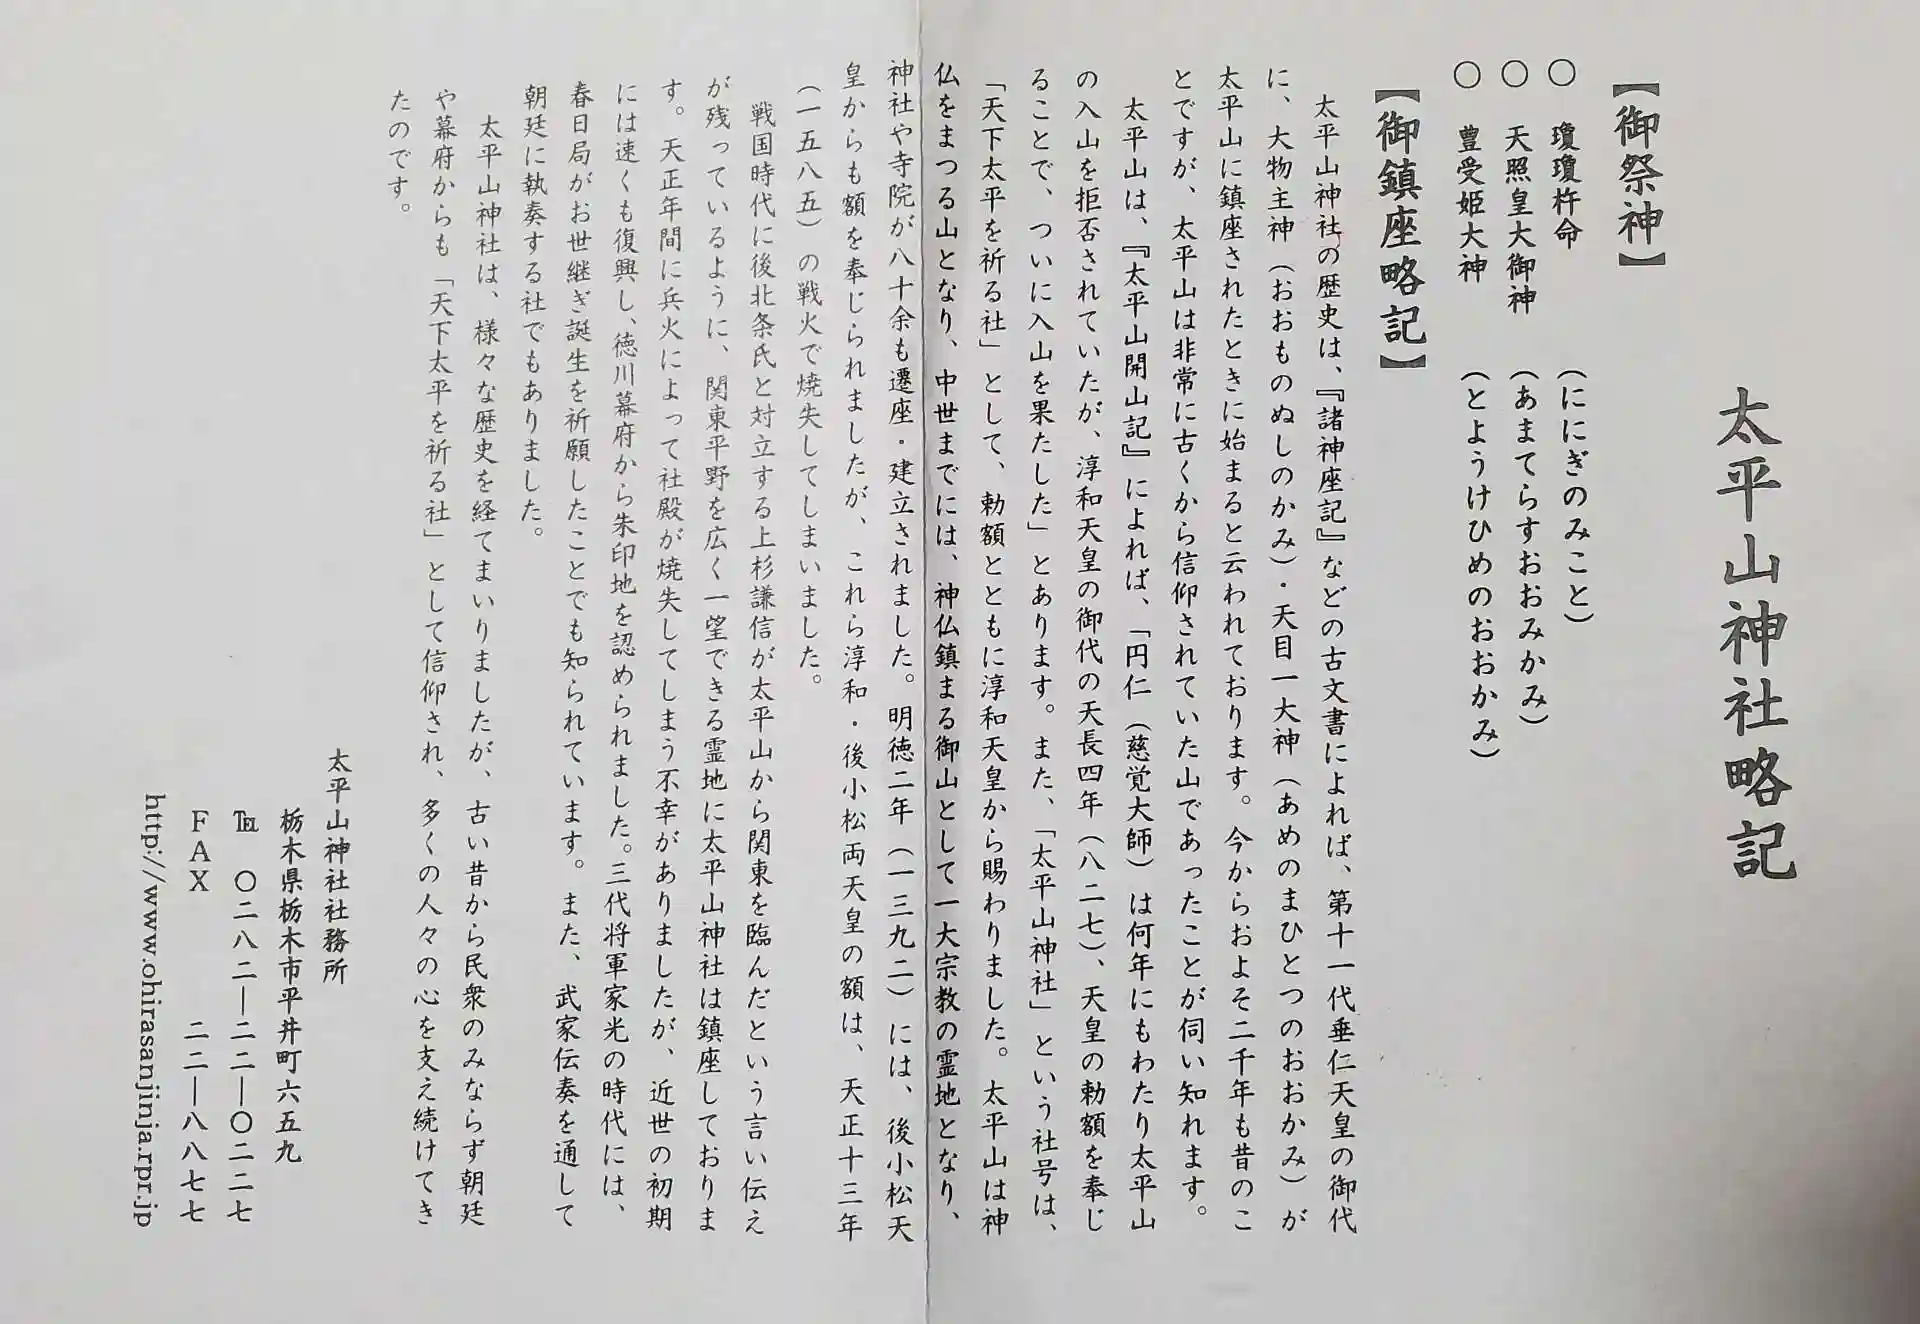 太平山神社略記
【御祭神】
○ 瓊瓊杵命 (ににぎのみこと)
○ 天照皇大御神 (あまてらすおおみかみ)
○ 豊受姫大神 (とようけひめのおおかみ)
【御鎮座略記】
太平山神社の歴史は、『諸神座記』などの古文書によれば、第十一代垂仁天皇の御代
に、大物主神（おおものぬしのかみ）・天目一大神（あめのまひとつのおおかみ）が
太平山に鎮座されたときに始まると云われております。今からおよそ二千年も昔のこ
とですが、太平山は非常に古くから信仰されていた山であったことが伺い知れます。
太平山は、『太平山開山記』によれば、「円仁（慈覚大師）は何年にもわたり太平山
の入山を拒否されていたが、淳和天皇の御代の天長四年（八二七）、天皇の勅額を奉じ
ることで、ついに入山を果たした」とあります。また、「太平山神社」という社号は、
「天下太平を祈る社」として、勅額とともに淳和天皇から賜わりました。太平山は神
仏をまつる山となり、中世までには、神仏鎮まる御山として一大宗教の霊地となり、
神社や寺院が八十余も遷座・建立されました。明徳二年（一三九二）には、後小松天
皇からも額を奉じられましたが、これら淳和・後小松両天皇の額は、天正十三年
（一五八五）の戦火で焼失してしまいました。
戦国時代に後北条氏と対立する上杉謙信が太平山から関東を臨んだという言い伝え
が残っているように、関東平野を広く一望できる霊地に太平山神社は鎮座しておりま
す。天正年間に兵火によって社殿が焼失してしまう不幸がありましたが、近世の初期
には速くも復興し、徳川幕府から朱印地を認められました。三代将軍家光の時代には、
春日局がお世継ぎ誕生を祈願したことでも知られています。また、武家伝奏を通して
朝廷に執奏する社でもありました。
太平山神社は、様々な歴史を経てまいりましたが、古い昔から民衆のみならず朝廷
や幕府からも「天下太平を祈る社」として信仰され、多くの人々の心を支え続けてき
たのです。
太平山神社社務所
栃木県栃木市平井町六五九
℡ 〇二八二―二二―〇二二七
FAX 二二―八八七七
http://www.ohirasanjinja.rpr.jp